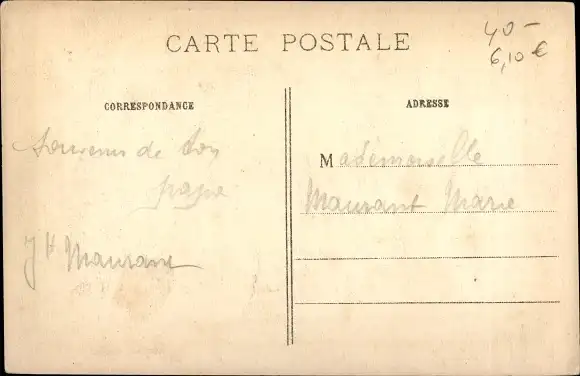 40-
6,10 €
CARTE POSTALE
CORRESPONDANCE
ADRESSE
Souvenir de ton
papa
Jh Maurant
Mademoiselle
Maurant Marie